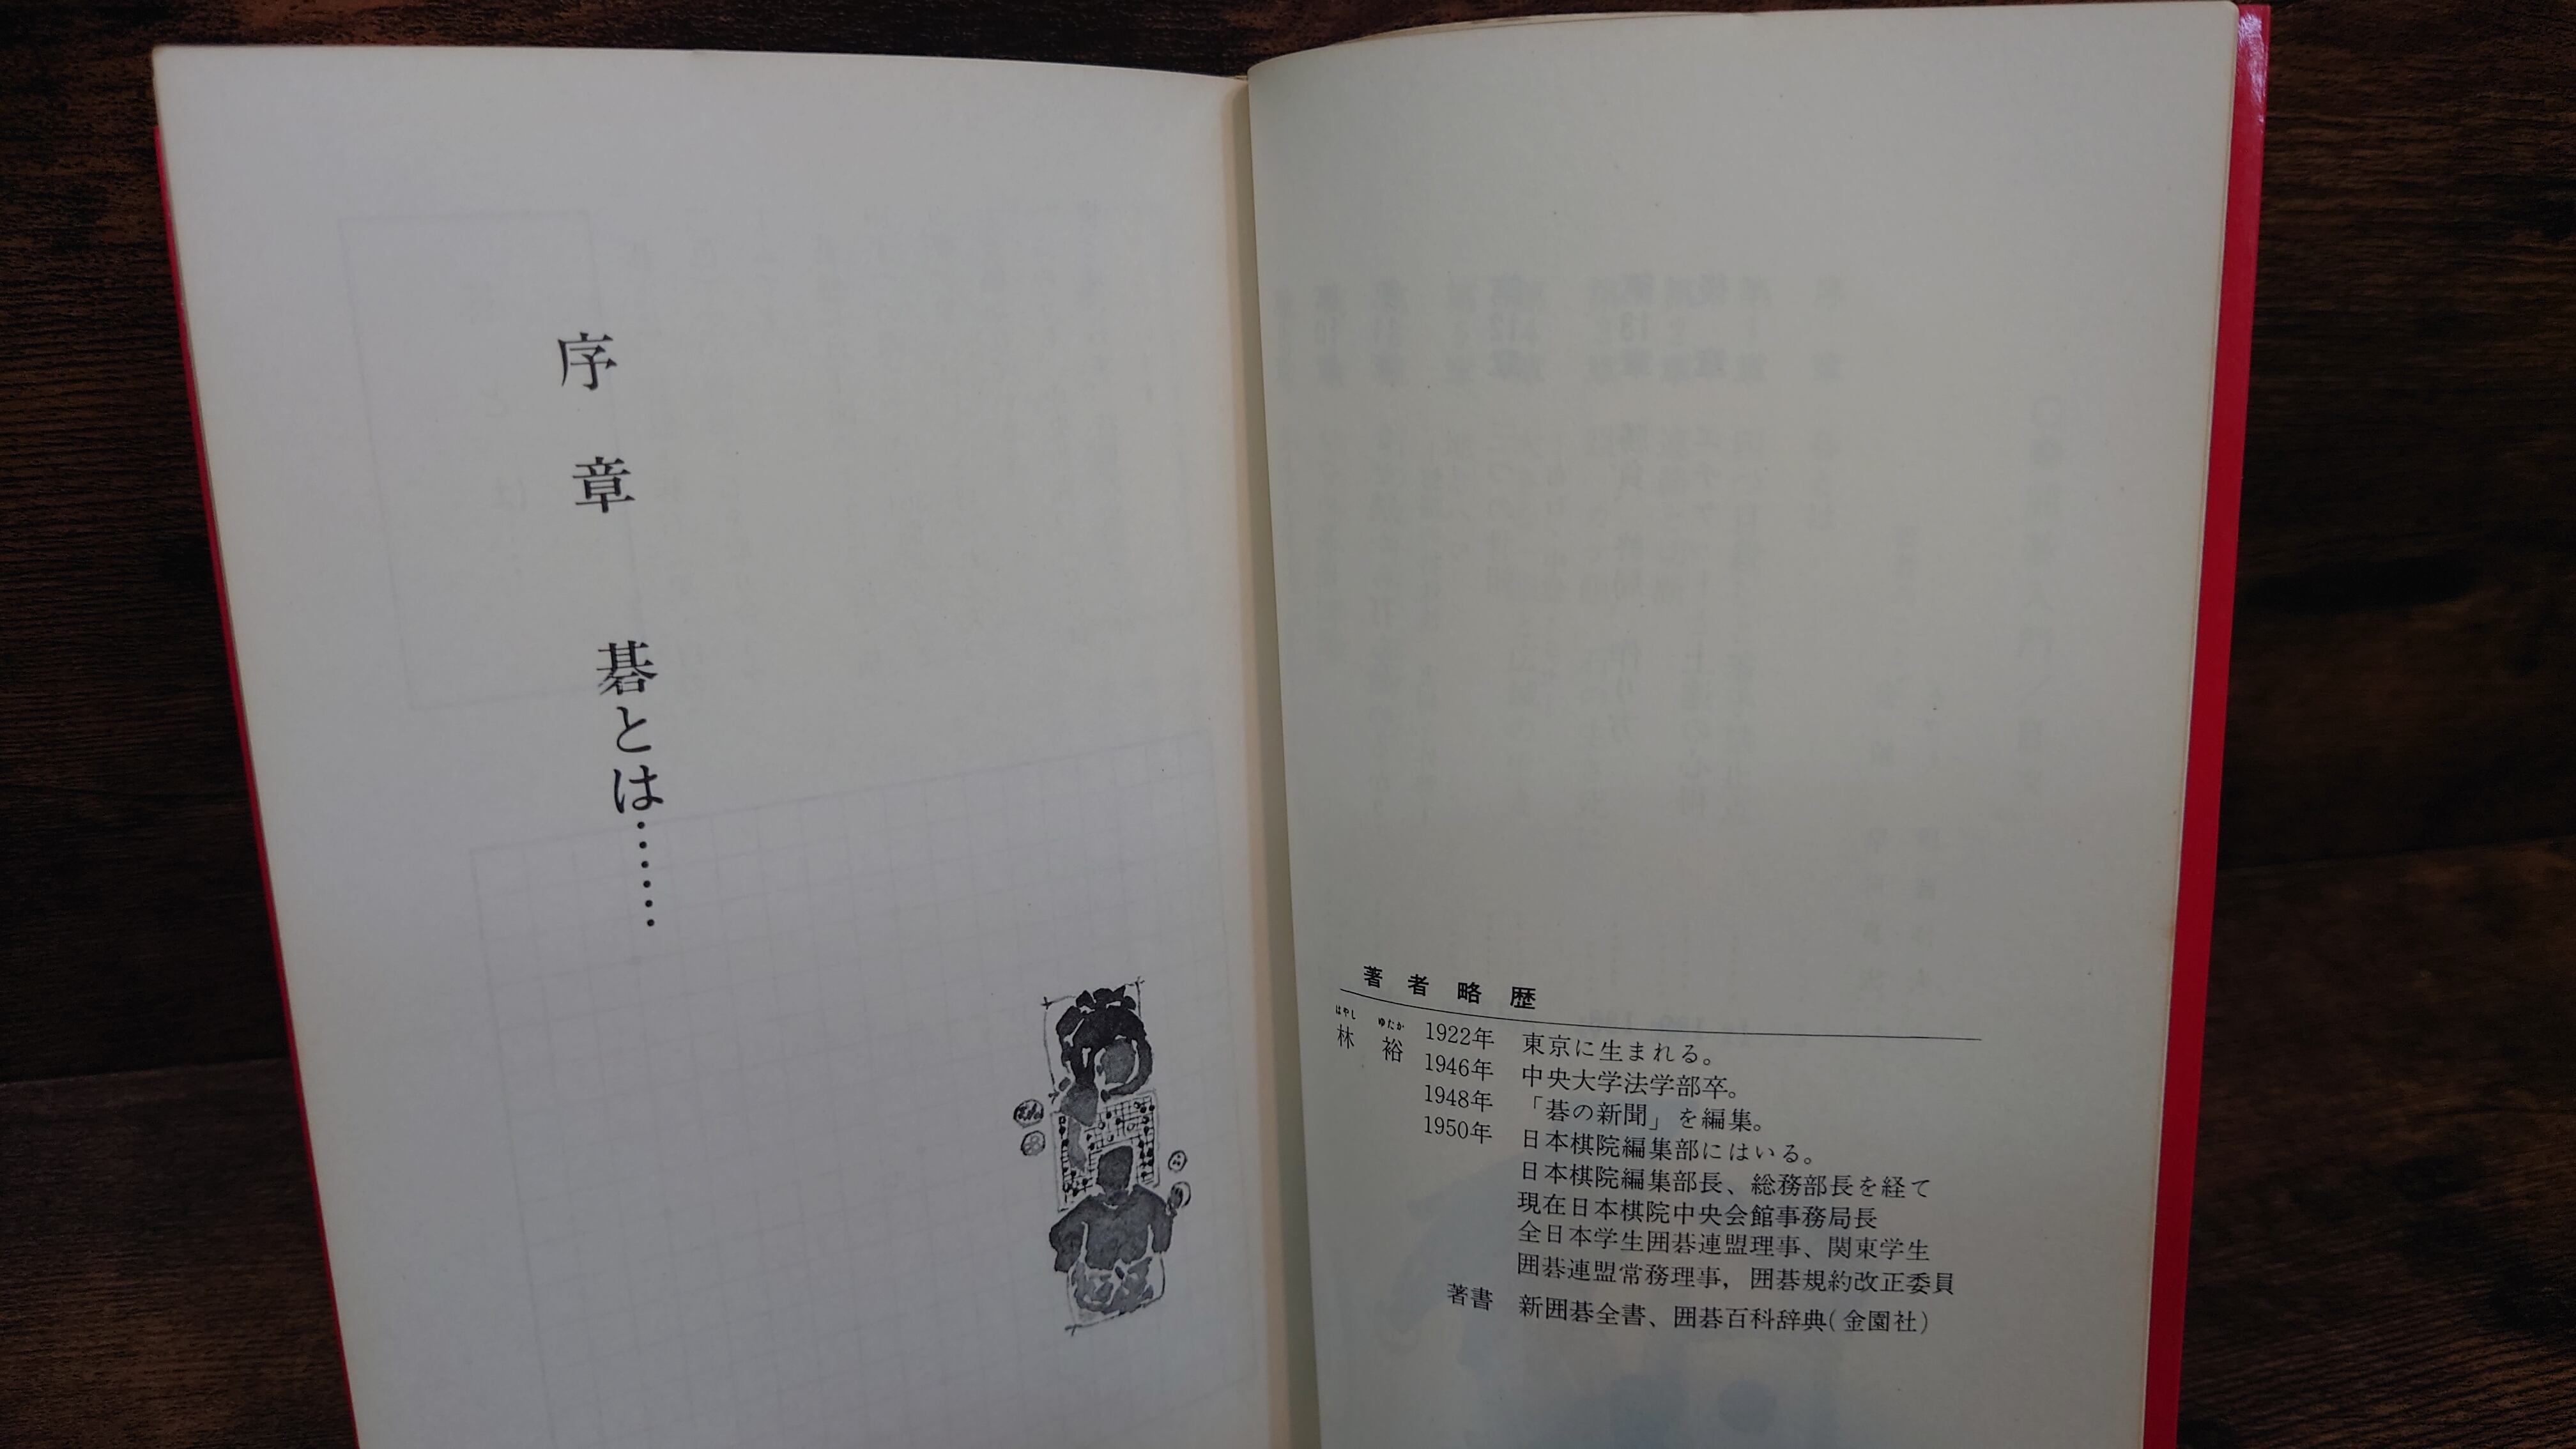 著者略歴
はやし ゆたか
林 裕
1922年 東京に生まれる。
1946年 中央大学法学部卒。
1948年 「碁の新聞」を編集。
1950年 日本棋院編集部にはいる。
日本棋院編集部長、総務部長を経て
現在日本棋院中央会館事務局長
全日本学生囲碁連盟理事、関東学生
囲碁連盟常務理事，囲碁規約改正委員
著書 新囲碁全書、囲碁百科辞典(金園社)
序章 碁とは……